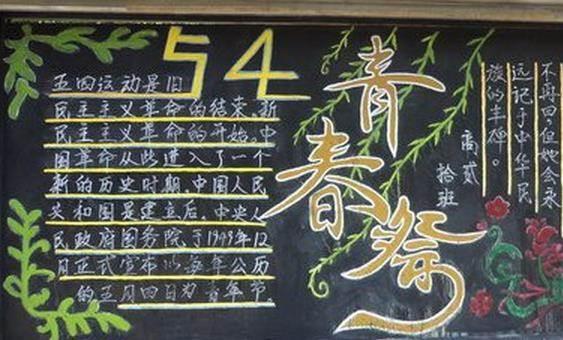 54
五四运动是旧
民主主义革命的结束,新
民主主义革命的开始。中
国革命从此进入了一个
新的历史时期。中国人民
共和国是建立后,中央人
民政府国务院于1949年12
月正式宣布以每年公历
的五月四日为青年节。
青春祭
不再回,但她会永
远记于中华民
族的丰碑。
高贰
拾班